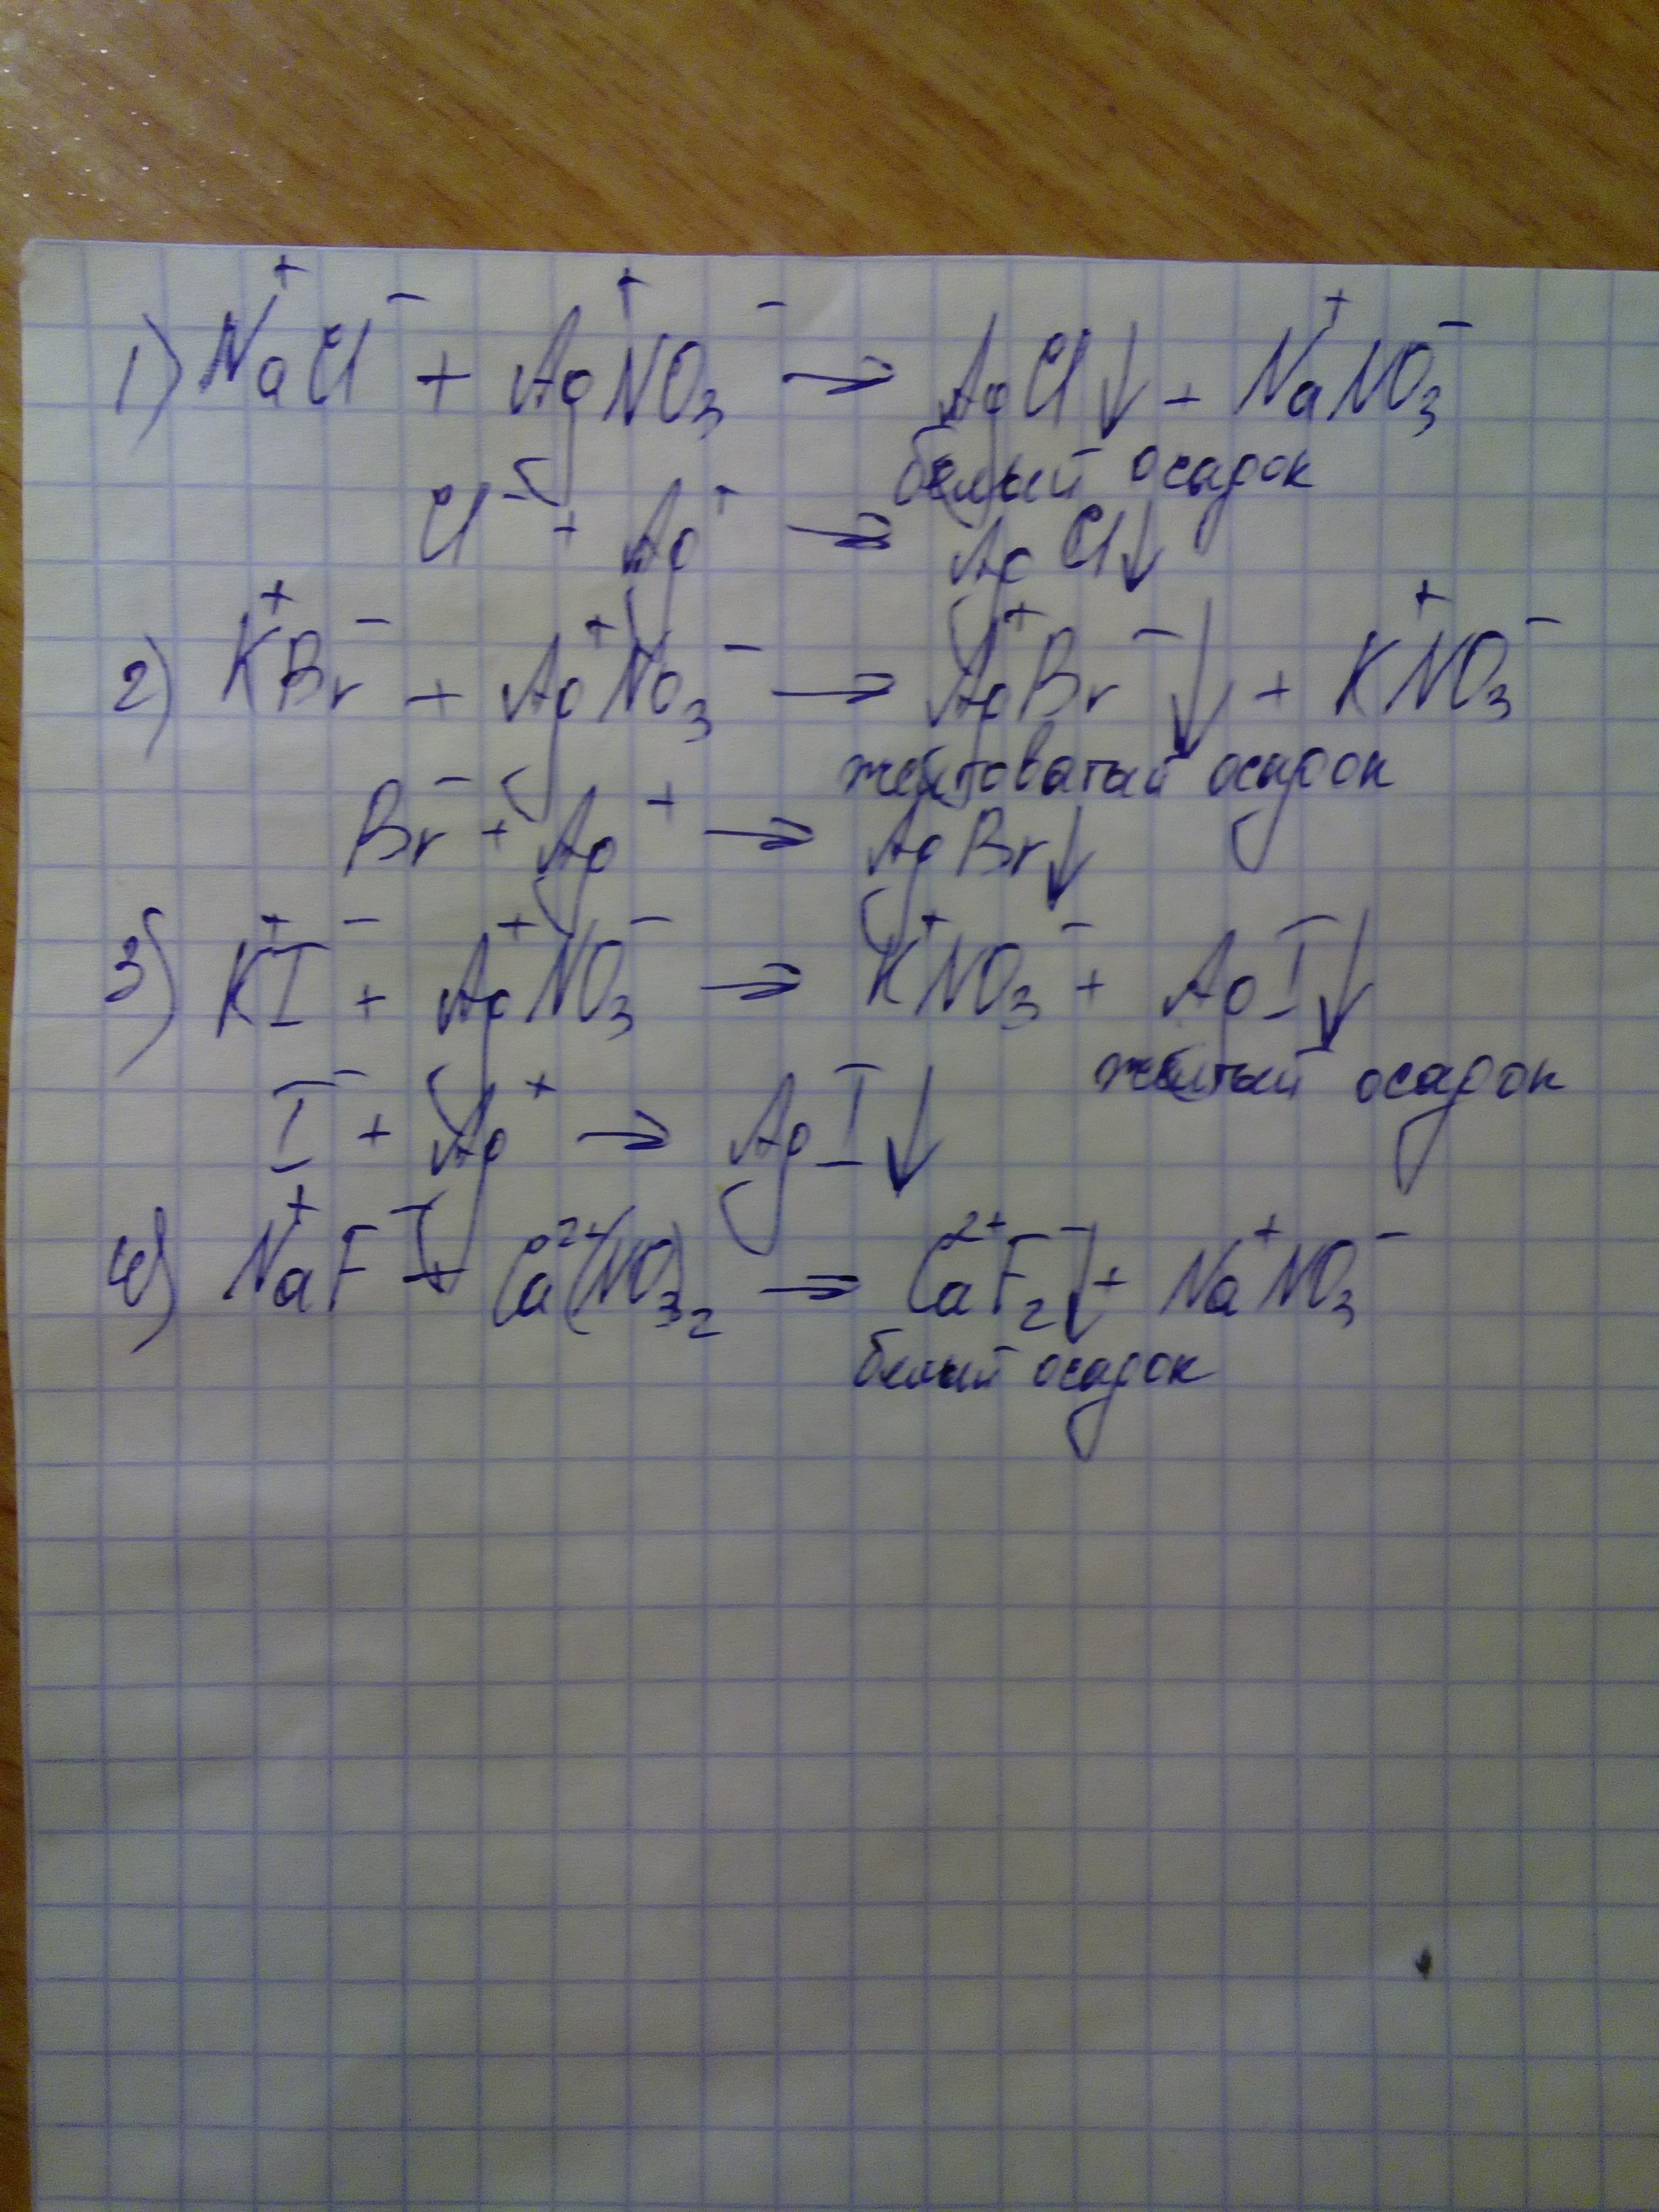 1) Na⁺Cl⁻ + Ag⁺NO₃⁻ → AgCl↓ + Na⁺NO₃⁻
белый осадок
Cl⁻ + Ag⁺ → AgCl↓
2) K⁺Br⁻ + Ag⁺NO₃⁻ → Ag⁺Br⁻↓ + K⁺NO₃⁻
желтоватый осадок
Br⁻ + Ag⁺ → AgBr↓
3) K⁺I⁻ + Ag⁺NO₃⁻ → K⁺NO₃⁻ + AgI↓
жёлтый осадок
I⁻ + Ag⁺ → AgI↓
4) Na⁺F⁻ + Ca²⁺(NO₃)₂ → Ca²⁺F₂⁻↓ + Na⁺NO₃⁻
белый осадок